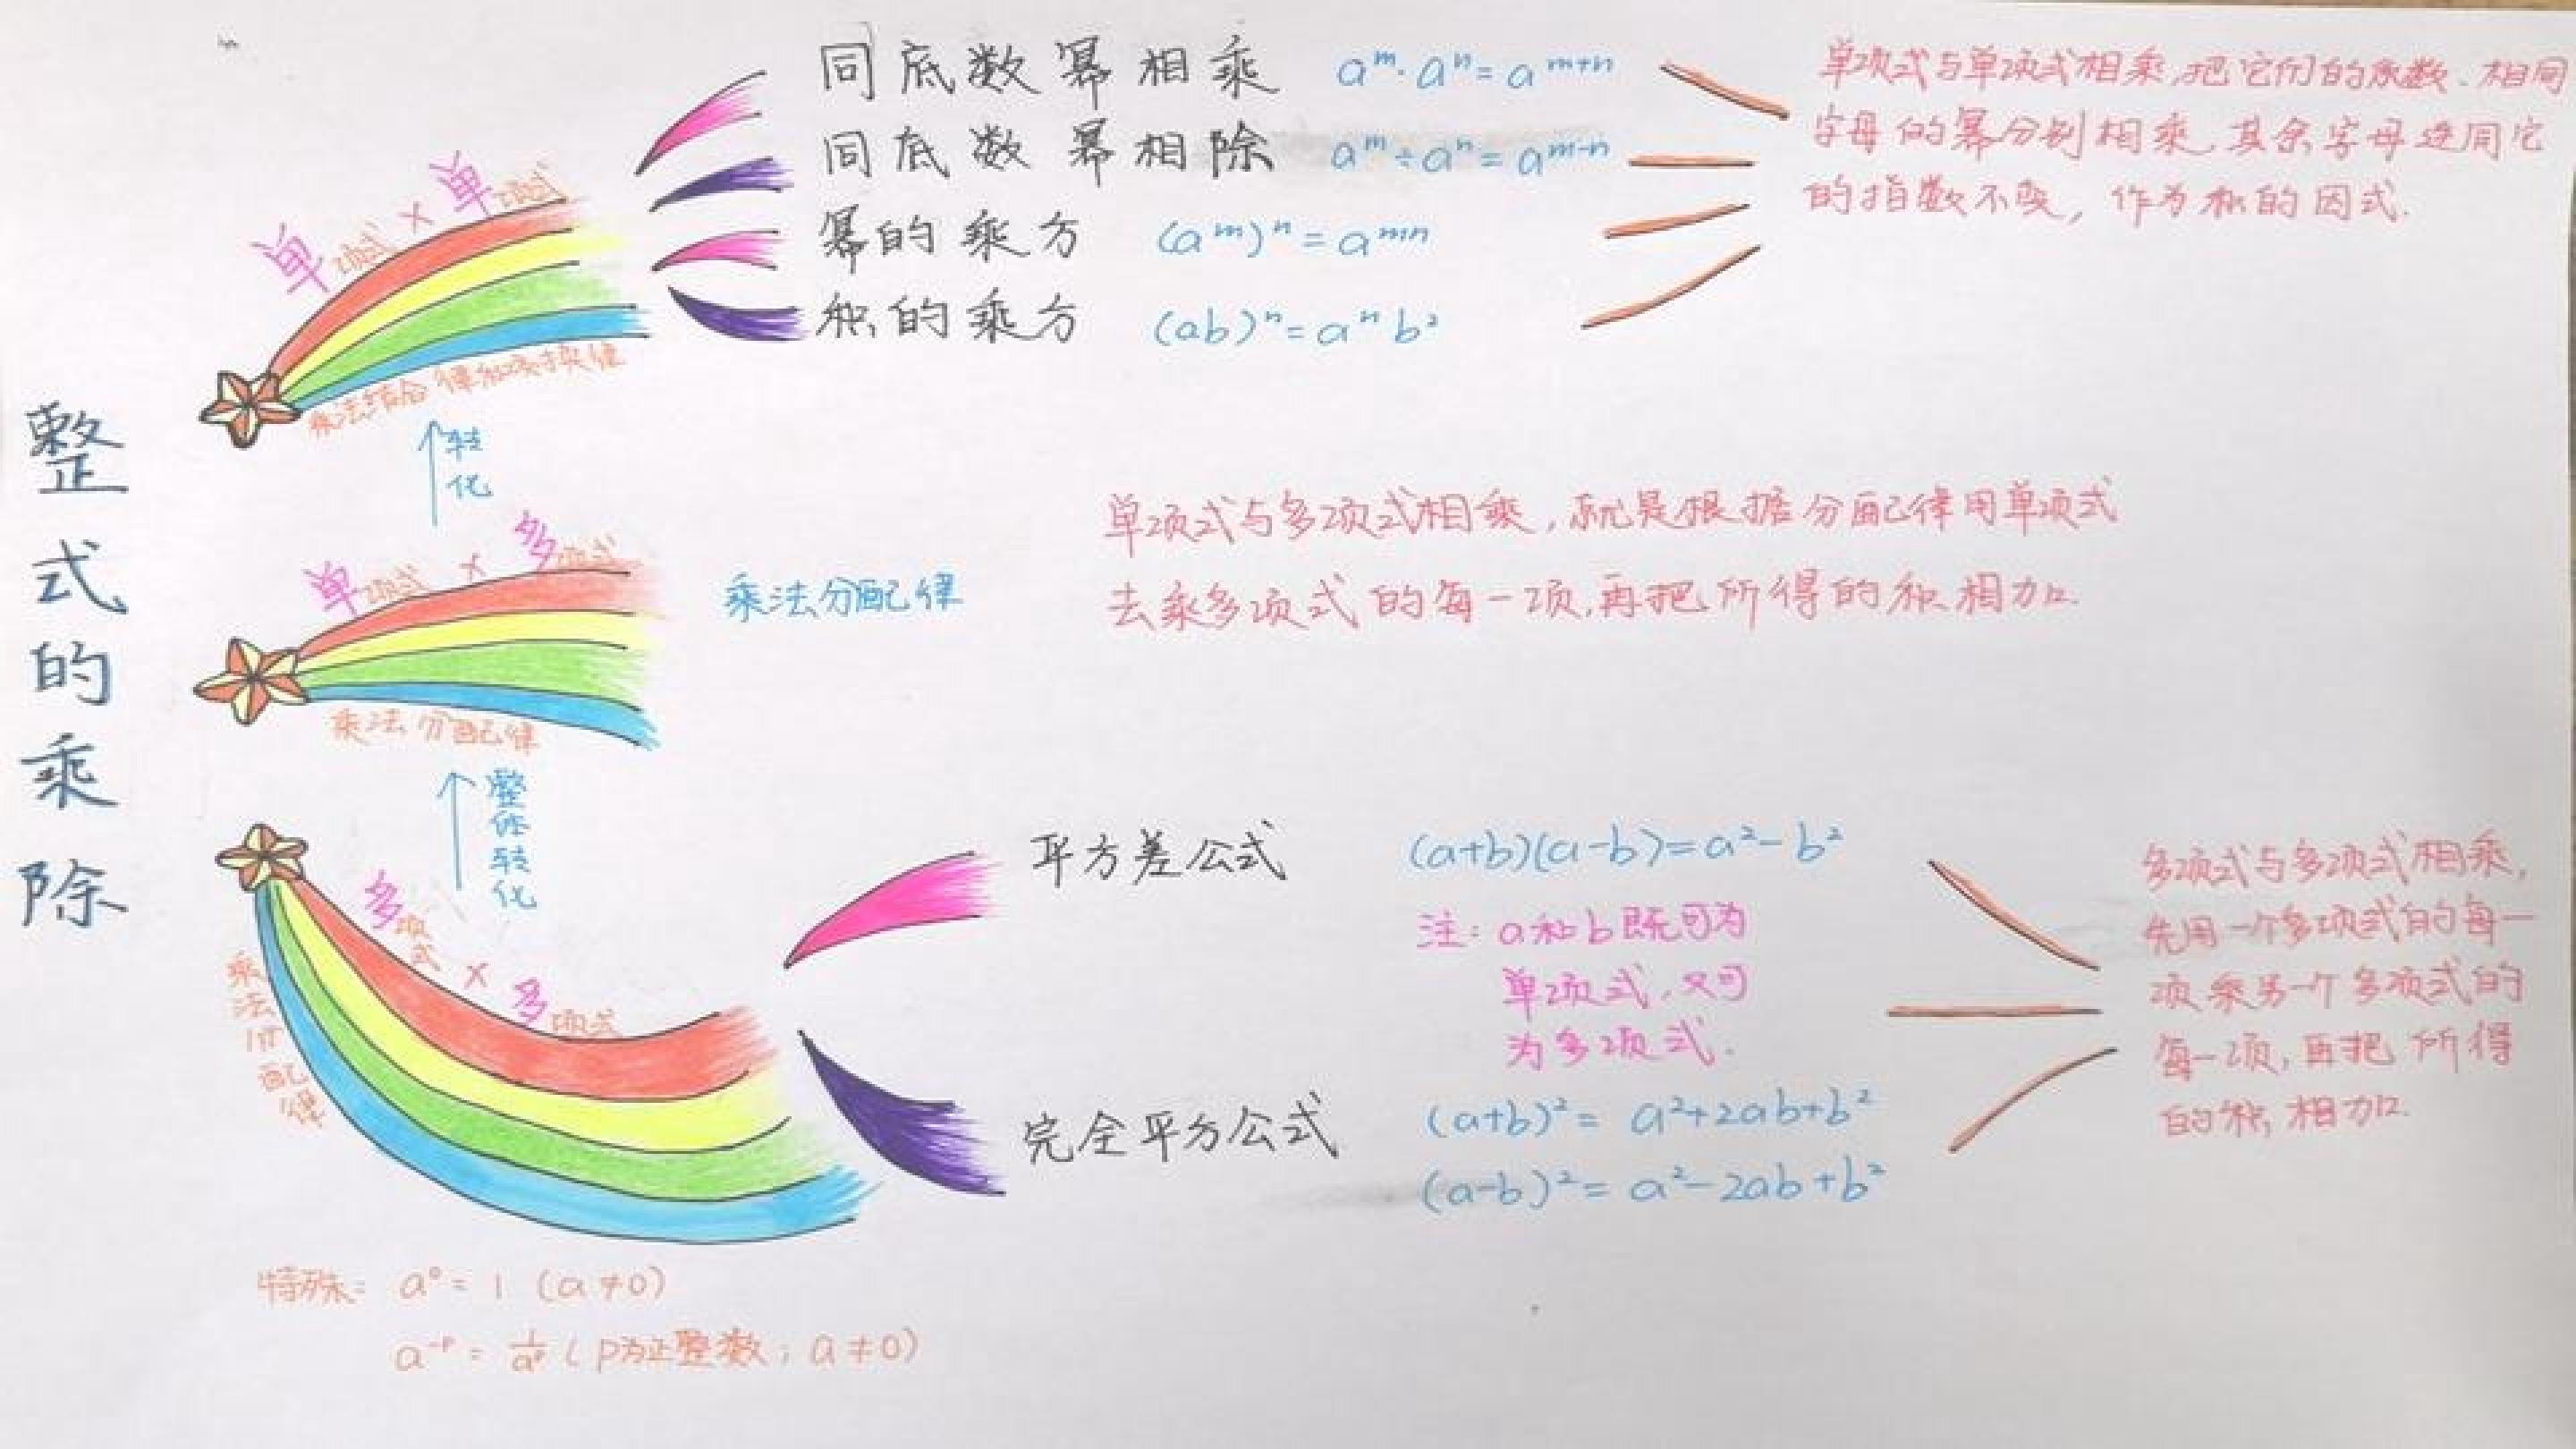 整式的乘除
单项式×单项式
乘法结合律和交换律
同底数幂相乘 aᵐ·aⁿ=aᵐ⁺ⁿ
同底数幂相除 aᵐ÷aⁿ=aᵐ⁻ⁿ
幂的乘方 (aᵐ)ⁿ=aᵐⁿ
积的乘方 (ab)ⁿ=aⁿb²
单项式与单项式相乘,把它们的系数、相同
字母的幂分别相乘,其余字母连同它
的指数不变,作为积的因式.
转化
单项式×多项式
乘法分配律
乘法分配律
单项式与多项式相乘,就是根据分配律用单项式
去乘多项式的每一项,再把所得的积相加.
整体转化
多项式×多项式
乘法分配律
平方差公式 (a+b)(a-b)=a²-b²
注:a和b既可为
单项式,又可
为多项式.
完全平方公式 (a+b)²=a²+2ab+b²
(a-b)²=a²-2ab+b²
多项式与多项式相乘,
先用一个多项式的每一
项乘另一个多项式的
每一项,再把所得
的积相加.
特殊:a⁰=1(a≠0)
a⁻ᵖ=1/aᵖ(p为正整数;a≠0)